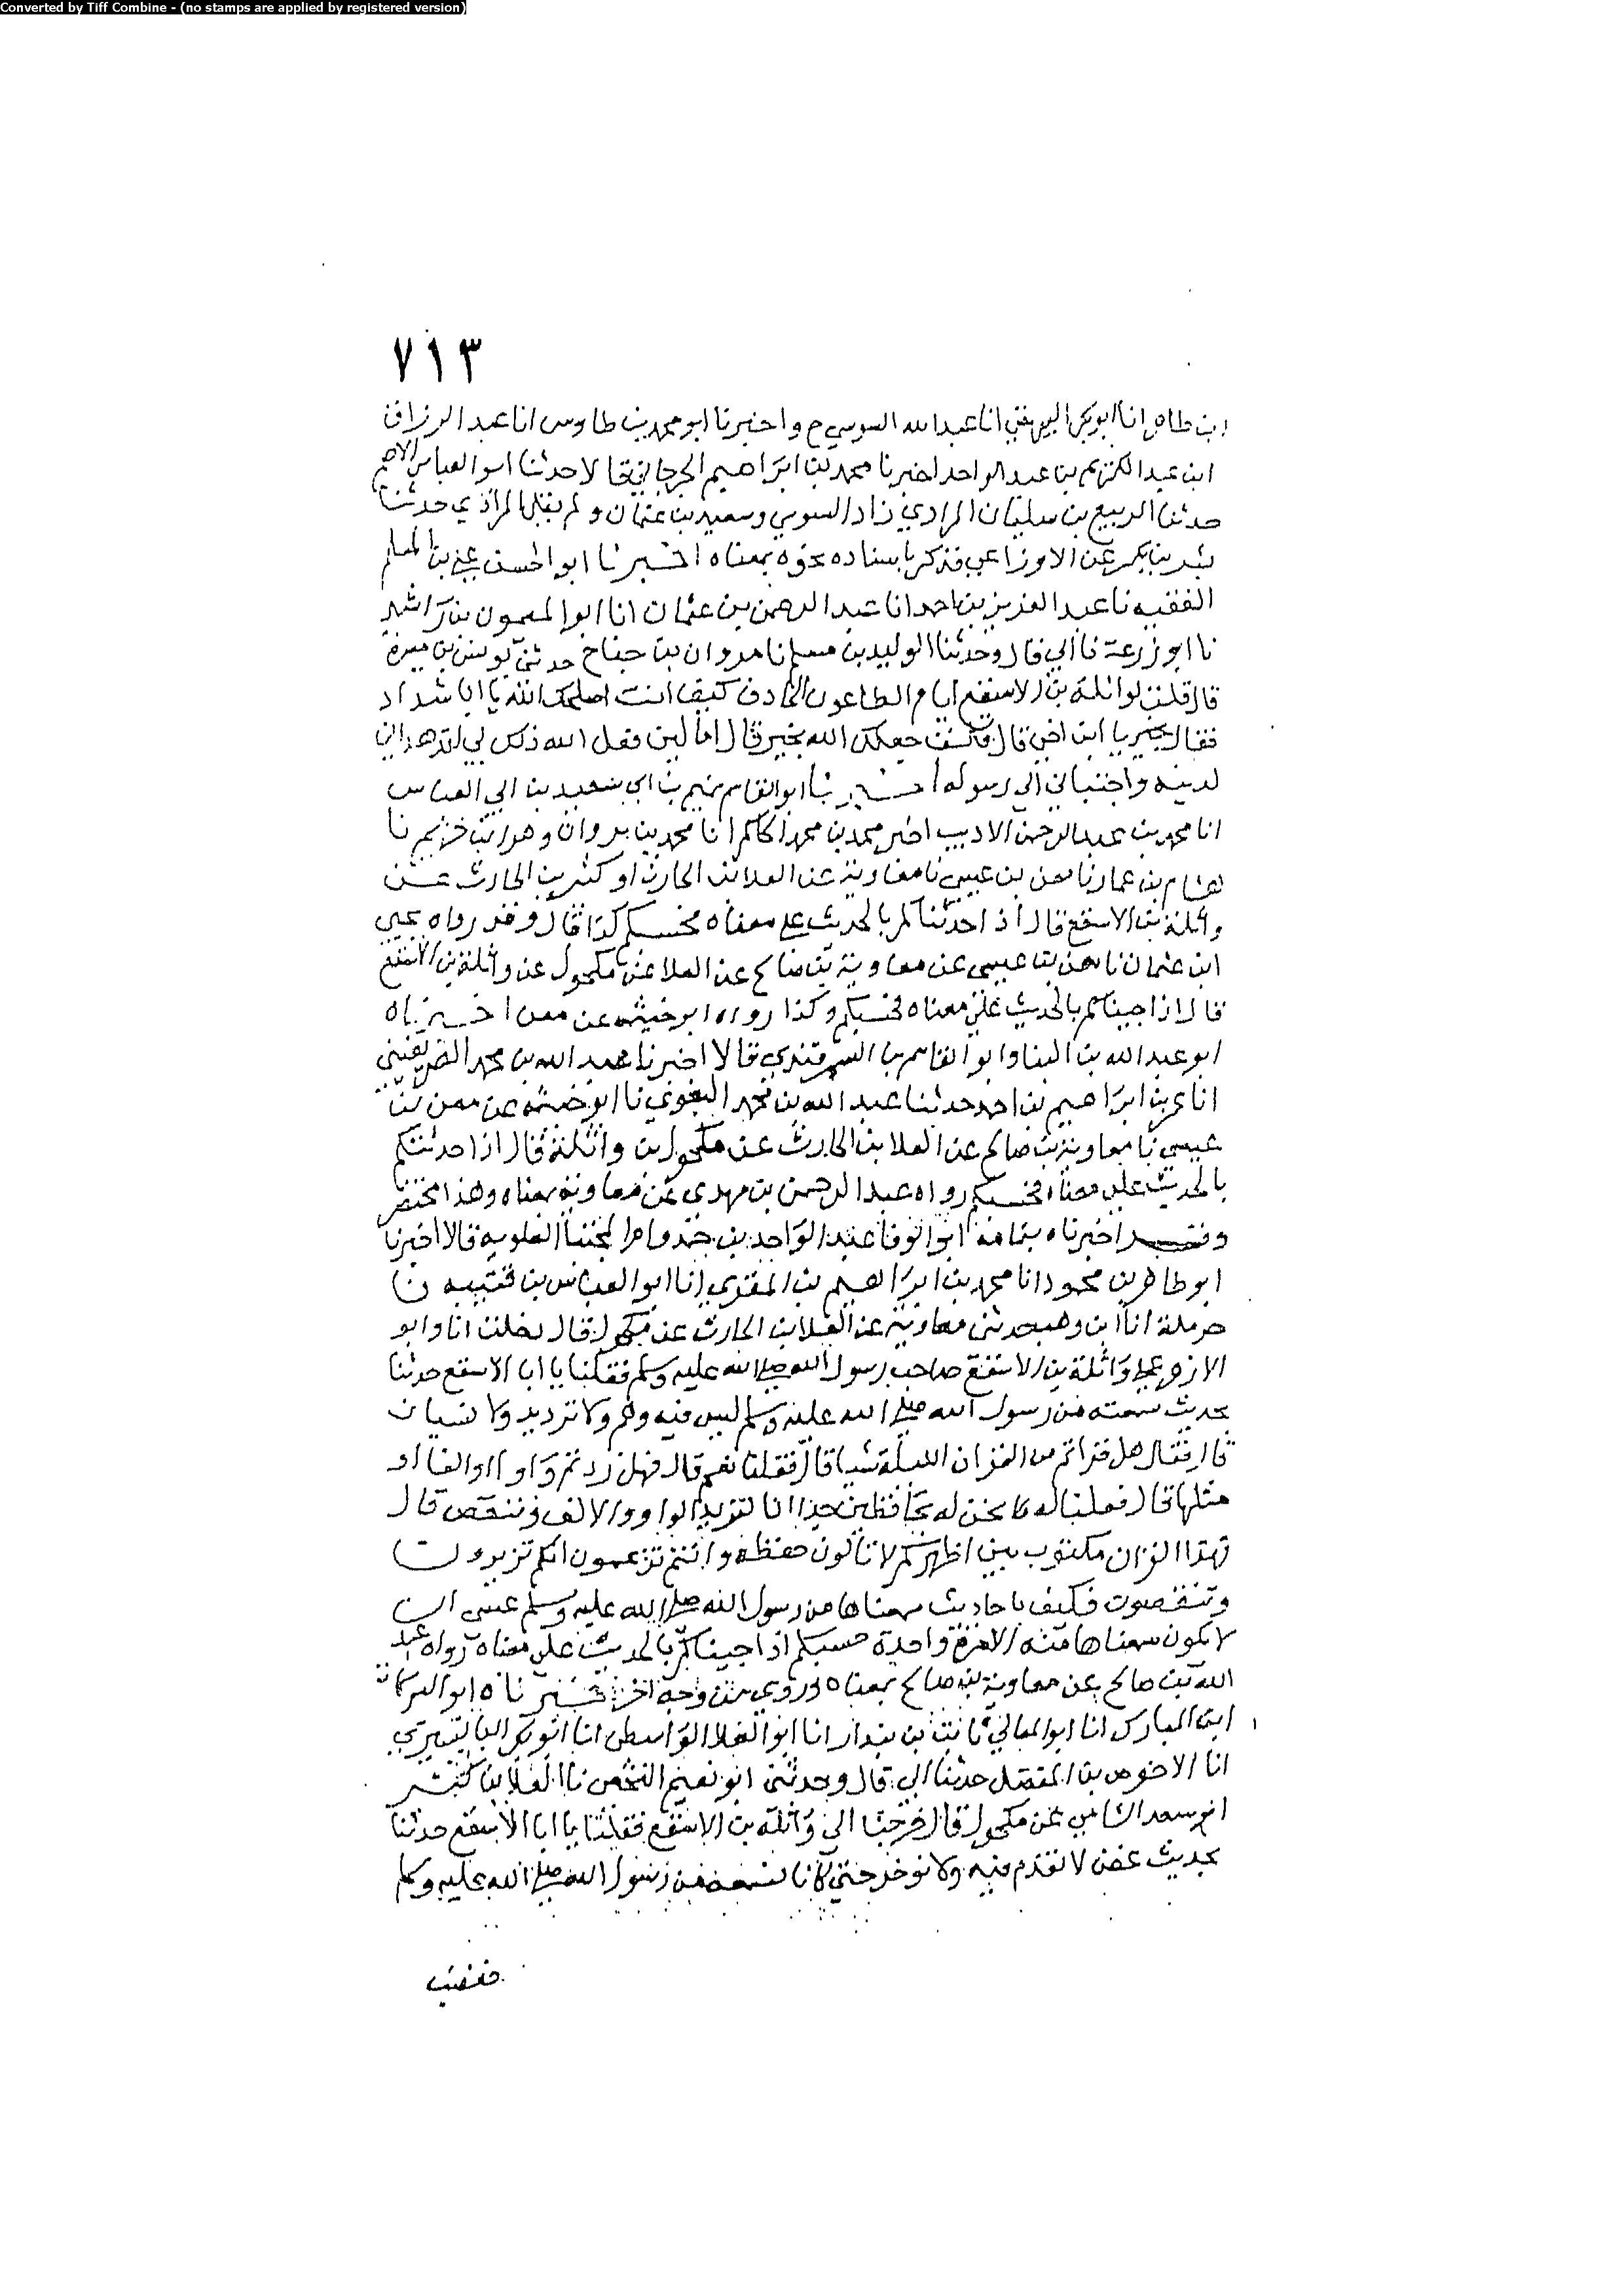 Converted by Tiff Combine - (no stamps are applied by registered version)
٧١٣
ابن طاهر انا ابو بكر البيهقي انا عبد الله السوسي ح واخبرنا ابو محمد بن طاوس انا عبد الرزاق
ابن عبد الكريم بن عبد الواحد اخبرنا محمد بن ابراهيم الجرجاني قالا حدثنا ابو العباس الاصم
حدثنا الربيع بن سليمان المرادي زاد السوسي وسعيد بن عثمان ولم يقل المرادي حدثنا
بشر بن بكر عن الاوزاعي فذكر باسناده نحوه بمعناه اخبرنا ابو الحسن علي بن المسلم
الفقيه نا عبد العزيز بن احمد انا عبد الرحمن بن عثمان انا ابو الميمون بن راشد
نا ابو زرعة نا ابي قال وحدثنا الوليد بن مسلم نا مروان بن جناح حدثني يونس بن ميسرة
قال قلت لواثلة بن الاسقع ايام الطاعون الجارف كيف انت اصلحك الله يا ابا شداد
فقال بخير يا ابن اخي قال قلت جعلك الله بخير قال اما لين فعل الله ذلك بي لقد هداني
لدينه واجتباني الي رسوله اخبرنا ابو القاسم تميم بن ابي سعيد بن ابي العباس
انا محمد بن عبد الرحمن الاديب اخبر محمد بن محمد الحاكم انا محمد بن مروان وهو ابن خزيم نا
هشام بن عمار نا معن بن عيسي نا معاوية عن العلا بن الحارث او كثير بن الحارث عن
واثلة بن الاسقع قال اذا حدثناكم بالحديث علي معناه فحسبكم كذا قال وقد رواه يحيي
ابن عثمان نا معن بن عيسي عن معاوية بن صالح عن العلا عن مكحول عن واثلة بن الاسقع
قال اذا جيناكم بالحديث علي معناه فحسبكم وكذا رواه ابو خيثمه عن معن اخبرناه
ابو عبد الله بن البنا وابو القاسم بن السمرقندي قالا اخبرنا عبد الله بن محمد الصريفيني
انا عمر بن ابراهيم بن احمد حدثنا عبد الله بن محمد البغوي نا ابو خيثمه عن معن بن
عيسي نا معاوية بن صالح عن العلا بن الحارث عن مكحول بن واثلة قال اذا حدثتكم
بالحديث علي معناه فحسبكم رواه عبد الرحمن بن مهدي عن معاوية بمعناه وهذا مختصر
وقد اخبرناه بتمامه ابو الوفا عبد الواحد بن حمد وام المجتبا العلويه قالا اخبرنا
ابو طاهر بن محمود انا محمد بن ابراهيم بن المقري انا ابو العباس بن قتيبه نا
حرملة انا ابن وهب حدثني معاوية عن العلا بن الحارث عن مكحول قال دخلت انا وابو
الازهر علي واثلة بن الاسقع صاحب رسول الله صلى الله عليه وسلم فقلنا يا ابا الاسقع حدثنا
بحديث سمعته من رسول الله صلى الله عليه وسلم ليس فيه وهم ولا تزيد ولا نسيان
قال فقال هل قراتم من القران الليلة شيا قال فقلنا نعم قال فهل زدتم واوا او الفا او
مثلها قال فقلنا له ما نحن له بحافظين جدا انا لنزيد الواو والالف وننقص قال
فهذا القران مكتوب بين اظهركم لا تالون حفظه وانتم تزعمون انكم تزيدون
وتنقصون فكيف باحاديث سمعناها من رسول الله صلى الله عليه وسلم عسى ان
لا يكون سمعناها منه الا مرة واحدة حسبكم اذا جيناكم بالحديث علي معناه رواه عبد
الله بن صالح عن معاوية بن صالح بمعناه وروي من وجه اخر اخبرناه ابو البركات
ابن المبارك انا ابو المعالي ثابت بن بندار انا ابو العلا الواسطي انا ابو بكر البابسيري
انا الاحوص بن المفضل حدثنا ابي قال وحدثني ابو نعيم النخعي نا العلا بن كثير
ابو سعد الشامي عن مكحول قال خرجنا الي واثلة بن الاسقع فقلنا يا ابا الاسقع حدثنا
بحديث غض لا تقدم فيه ولا توخر حتي كانا نسمعه من رسول الله صلى الله عليه وسلم
فغضب